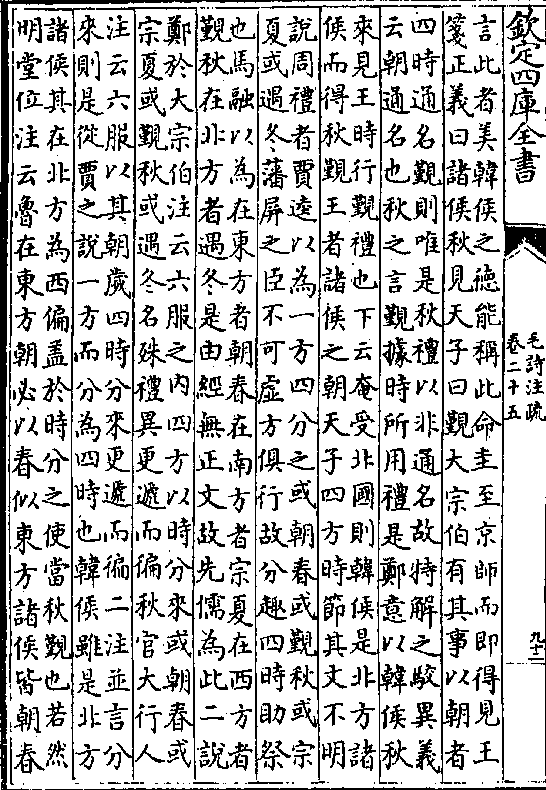 欽定四庫全書
毛詩注疏
卷二十五
言此者美韓侯之徳能稱此命圭至京師而即得見王
箋正義曰諸侯秋見天子曰覲大宗伯有其事以朝者
四時通名覲則唯是秋禮以非通名故特解之駮異義
云朝通名也秋之言覲據時所用禮是鄭意以韓侯秋
來見王時行覲禮也下云奄受北國則韓侯是北方諸
侯而得秋覲王者諸侯之朝天子四方時節其文不明
說周禮者賈逵以為一方四分之或朝春或覲秋或宗
夏或遇冬藩屏之臣不可虛方俱行故分趣四時助祭
也馬融以為在東方者朝春在南方者宗夏在西方者
覲秋在北方者遇冬是由經無正文故先儒為此二說
鄭於大宗伯注云六服之內四方以時分來或朝春或
宗夏或覲秋或遇冬名殊禮異更遞而徧秋官大行人
注云六服以其朝歲四時分來更遞而徧二注並言分
來則是從賈之說一方而分為四時也韓侯雖是北方
諸侯其在北方為西偏盖於時分之使當秋覲也若然
明堂位注云魯在東方朝必以春似東方諸侯皆朝春